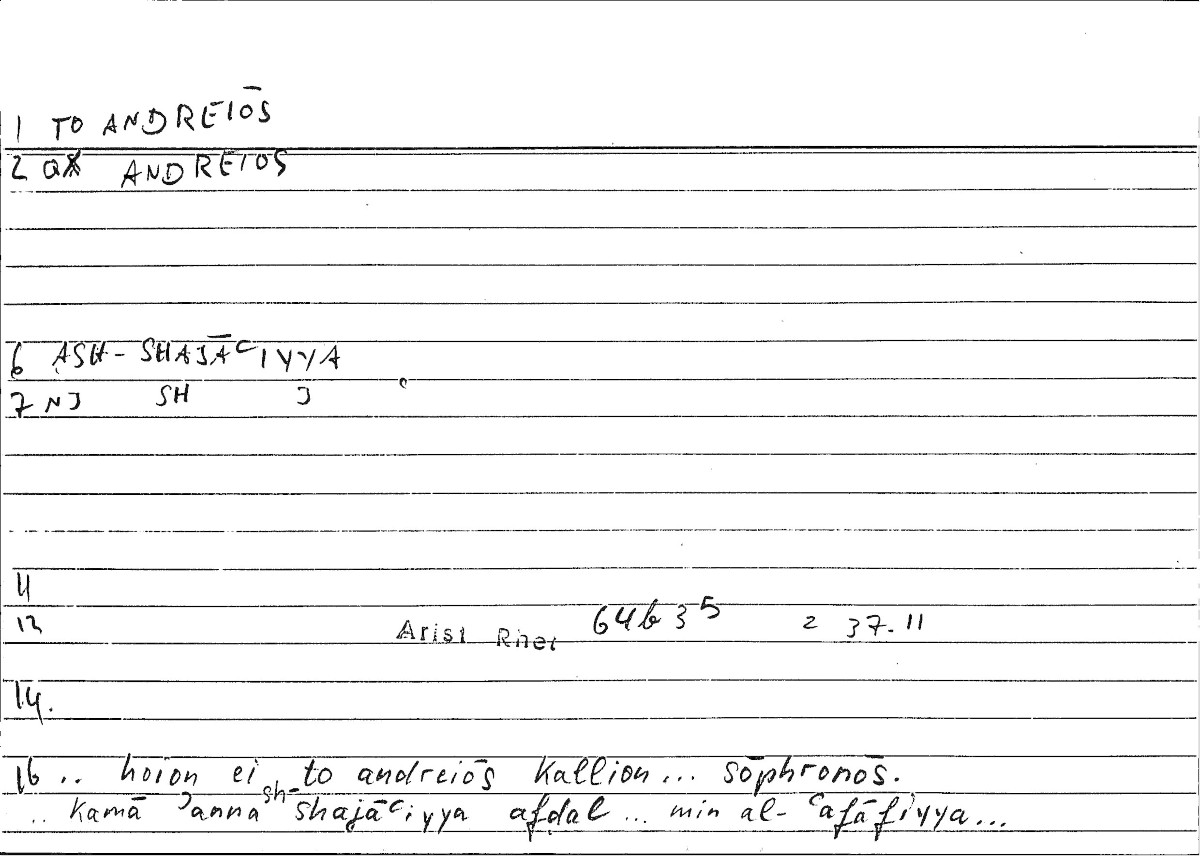 1 TO ANDREIŌS
2 QX ANDREIOS
6 ASH-SHAJĀᶜIYYA
7 NJ SH J
11
12 Arist Rhet 64b35 2 37.11
14.
16 .. hoion ei to andreiōs kallion... sōphronōs.
.. kamā ʾanna sh-shajāᶜiyya afḍal ... min al-ᶜafāfiyya...